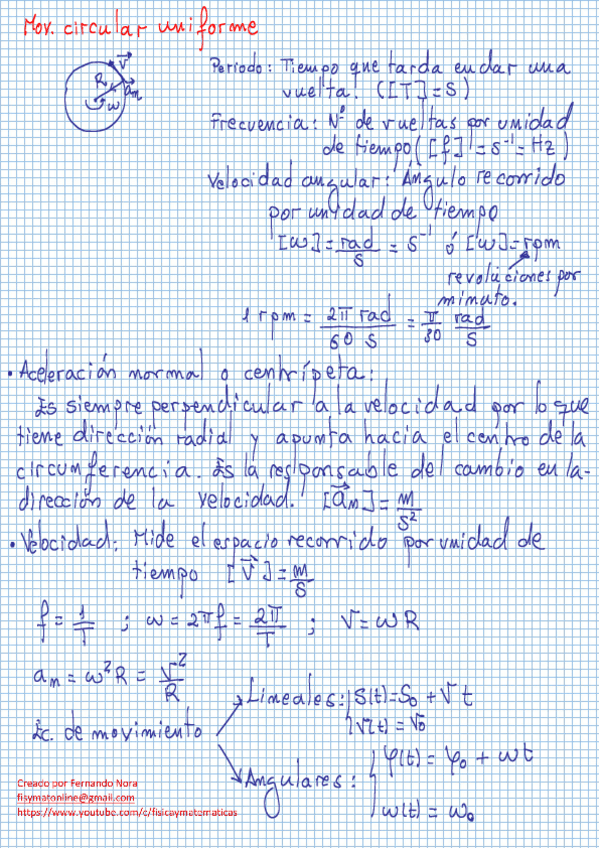 Mov. circular uniforme
v⃗
R
a⃗n
ω
Periodo: Tiempo que tarda en dar una
vuelta. ([T]=s)
Frecuencia: Nº de vueltas por unidad
de tiempo ([f] = s⁻¹ = Hz)
Velocidad angular: Ángulo recorrido
por unidad de tiempo
[ω] = rad/s = s⁻¹ ó [ω]=rpm
revoluciones por
minuto.
1 rpm = 2π rad / 60 s = π/30 rad/s
• Aceleración normal o centrípeta:
Es siempre perpendicular a la velocidad por lo que
tiene dirección radial y apunta hacia el centro de la
circunferencia. Es la responsable del cambio en la
dirección de la velocidad. [a⃗n] = m/s²
• Velocidad: Mide el espacio recorrido por unidad de
tiempo [v⃗] = m/s
f = 1/T ; ω = 2πf = 2π/T ; v = ωR
an = ω²R = v²/R
Ec. de movimiento
Lineales: s(t) = s₀ + v t
v(t) = v₀
Angulares: φ(t) = φ₀ + ωt
ω(t) = ω₀
Creado por Fernando Nora
fisymatonline@gmail.com
https://www.youtube.com/c/fisicaymatematicas